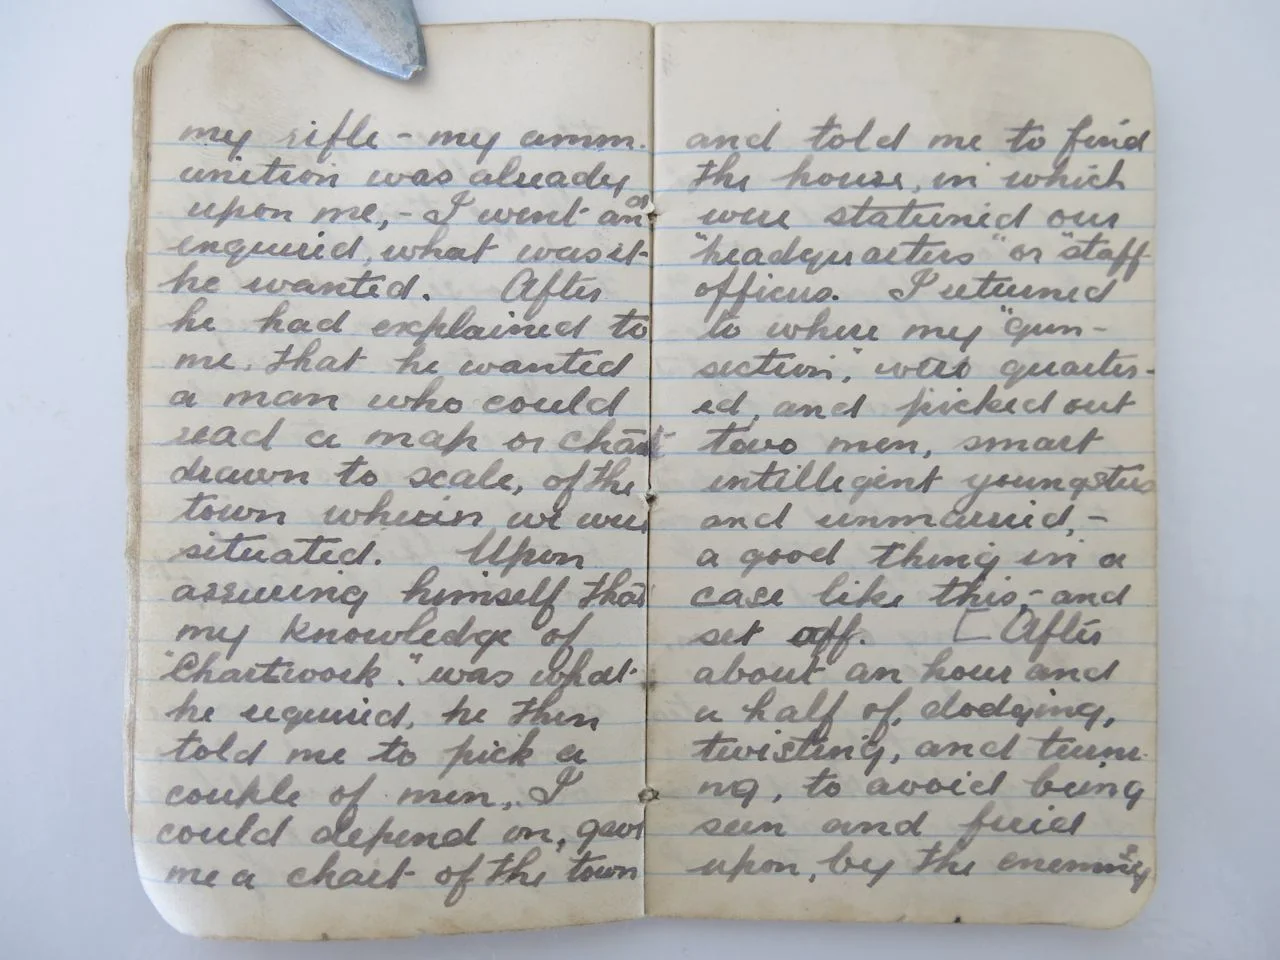 my rifle - my amm.
unition was already
upon me, - I went and
enquired, what was it
he wanted. After
he had explained to
me, that he wanted
a man who could
read a map or chart
drawn to scale, of the
town wherein we were
situated. Upon
assuring himself that
my knowledge of
"Chartwork". was what
he required, he then
told me to pick a
couple of men, I
could depend on, gave
me a chart of the town
and told me to find
the house, in which
were stationed our
"headquarters" or "staff
officers. I returned
to where my "gun-
section", was quarter-
ed, and picked out
two men, smart
intillegent youngsters
and unmarried, -
a good thing in a
case like this, - and
set off. [ After
about an hour and
a half of, dodging,
twisting, and turn-
ing, to avoid being
seen and fired
upon, by the enemy's